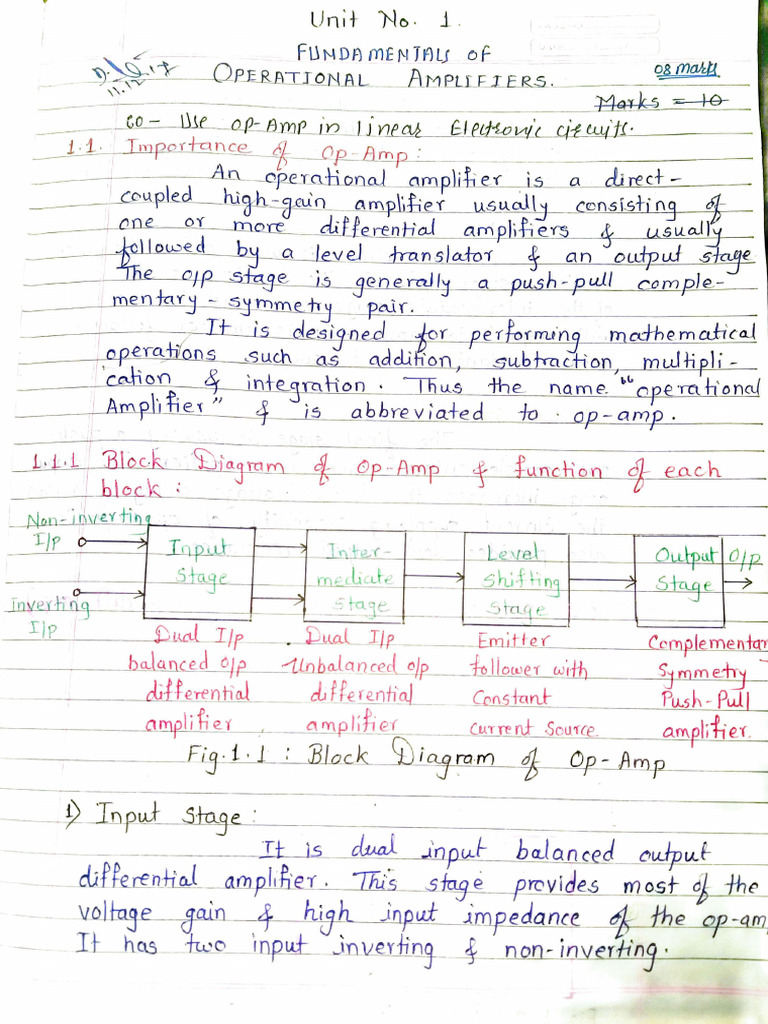 Unit No. 1.
FUNDAMENTALS OF
OPERATIONAL AMPLIFIERS.
11.12.17
08 marks
Marks = 10
CO - Use OP-Amp in linear Electronic circuits.
1.1. Importance of Op-Amp:
An operational amplifier is a direct-
coupled high-gain amplifier usually consisting of
one or more differential amplifiers & usually
followed by a level translator & an output stage
The o/p stage is generally a push-pull comple-
mentary-symmetry pair.
It is designed for performing mathematical
operations such as addition, subtraction, multipli-
cation & integration. Thus the name "operational
Amplifier" & is abbreviated to op-amp.
1.1.1 Block Diagram of Op-Amp & function of each
block:
Non-inverting
I/p
inverting
I/p
Input
Stage
Inter-
mediate
stage
Level
shifting
Stage
Output
Stage
O/p
Dual I/p
balanced o/p
differential
amplifier
Dual I/p
Unbalanced o/p
differential
amplifier
Emitter
follower with
Constant
current Source
Complementar
Symmetry
Push-Pull
amplifier.
Fig.1.1 : Block Diagram of Op-Amp
1) Input Stage:
It is dual input balanced output
differential amplifier. This stage provides most of the
voltage gain & high input impedance of the op-am
It has two input inverting & non-inverting.